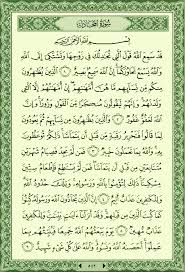 سُورَةُ المُجَادلة
بِسْمِ اللَّهِ الرَّحْمَٰنِ الرَّحِيمِ
قَدْ سَمِعَ اللَّهُ قَوْلَ الَّتِي تُجَادِلُكَ فِي زَوْجِهَا وَتَشْتَكِي إِلَى اللَّهِ
وَاللَّهُ يَسْمَعُ تَحَاوُرَكُمَا إِنَّ اللَّهَ سَمِيعٌ بَصِيرٌ ١ الَّذِينَ يُظَاهِرُونَ
مِنكُم مِّن نِّسَائِهِم مَّا هُنَّ أُمَّهَاتِهِمْ إِنْ أُمَّهَاتُهُمْ إِلَّا اللَّائِي
وَلَدْنَهُمْ وَإِنَّهُمْ لَيَقُولُونَ مُنكَرًا مِّنَ الْقَوْلِ وَزُورًا وَإِنَّ اللَّهَ
لَعَفُوٌّ غَفُورٌ ٢ وَالَّذِينَ يُظَاهِرُونَ مِن نِّسَائِهِمْ ثُمَّ يَعُودُونَ
لِمَا قَالُوا فَتَحْرِيرُ رَقَبَةٍ مِّن قَبْلِ أَن يَتَمَاسَّا ذَٰلِكُمْ تُوعَظُونَ بِهِ
وَاللَّهُ بِمَا تَعْمَلُونَ خَبِيرٌ ٣ فَمَن لَّمْ يَجِدْ فَصِيَامُ شَهْرَيْنِ مُتَتَابِعَيْنِ
مِن قَبْلِ أَن يَتَمَاسَّا فَمَن لَّمْ يَسْتَطِعْ فَإِطْعَامُ سِتِّينَ
مِسْكِينًا ذَٰلِكَ لِتُؤْمِنُوا بِاللَّهِ وَرَسُولِهِ وَتِلْكَ حُدُودُ اللَّهِ
وَلِلْكَافِرِينَ عَذَابٌ أَلِيمٌ ٤ إِنَّ الَّذِينَ يُحَادُّونَ اللَّهَ وَرَسُولَهُ
كُبِتُوا كَمَا كُبِتَ الَّذِينَ مِن قَبْلِهِمْ وَقَدْ أَنزَلْنَا آيَاتٍ بَيِّنَاتٍ وَلِلْكَافِرِينَ
عَذَابٌ مُّهِينٌ ٥ يَوْمَ يَبْعَثُهُمُ اللَّهُ جَمِيعًا فَيُنَبِّئُهُم بِمَا
عَمِلُوا أَحْصَاهُ اللَّهُ وَنَسُوهُ وَاللَّهُ عَلَىٰ كُلِّ شَيْءٍ شَهِيدٌ ٦